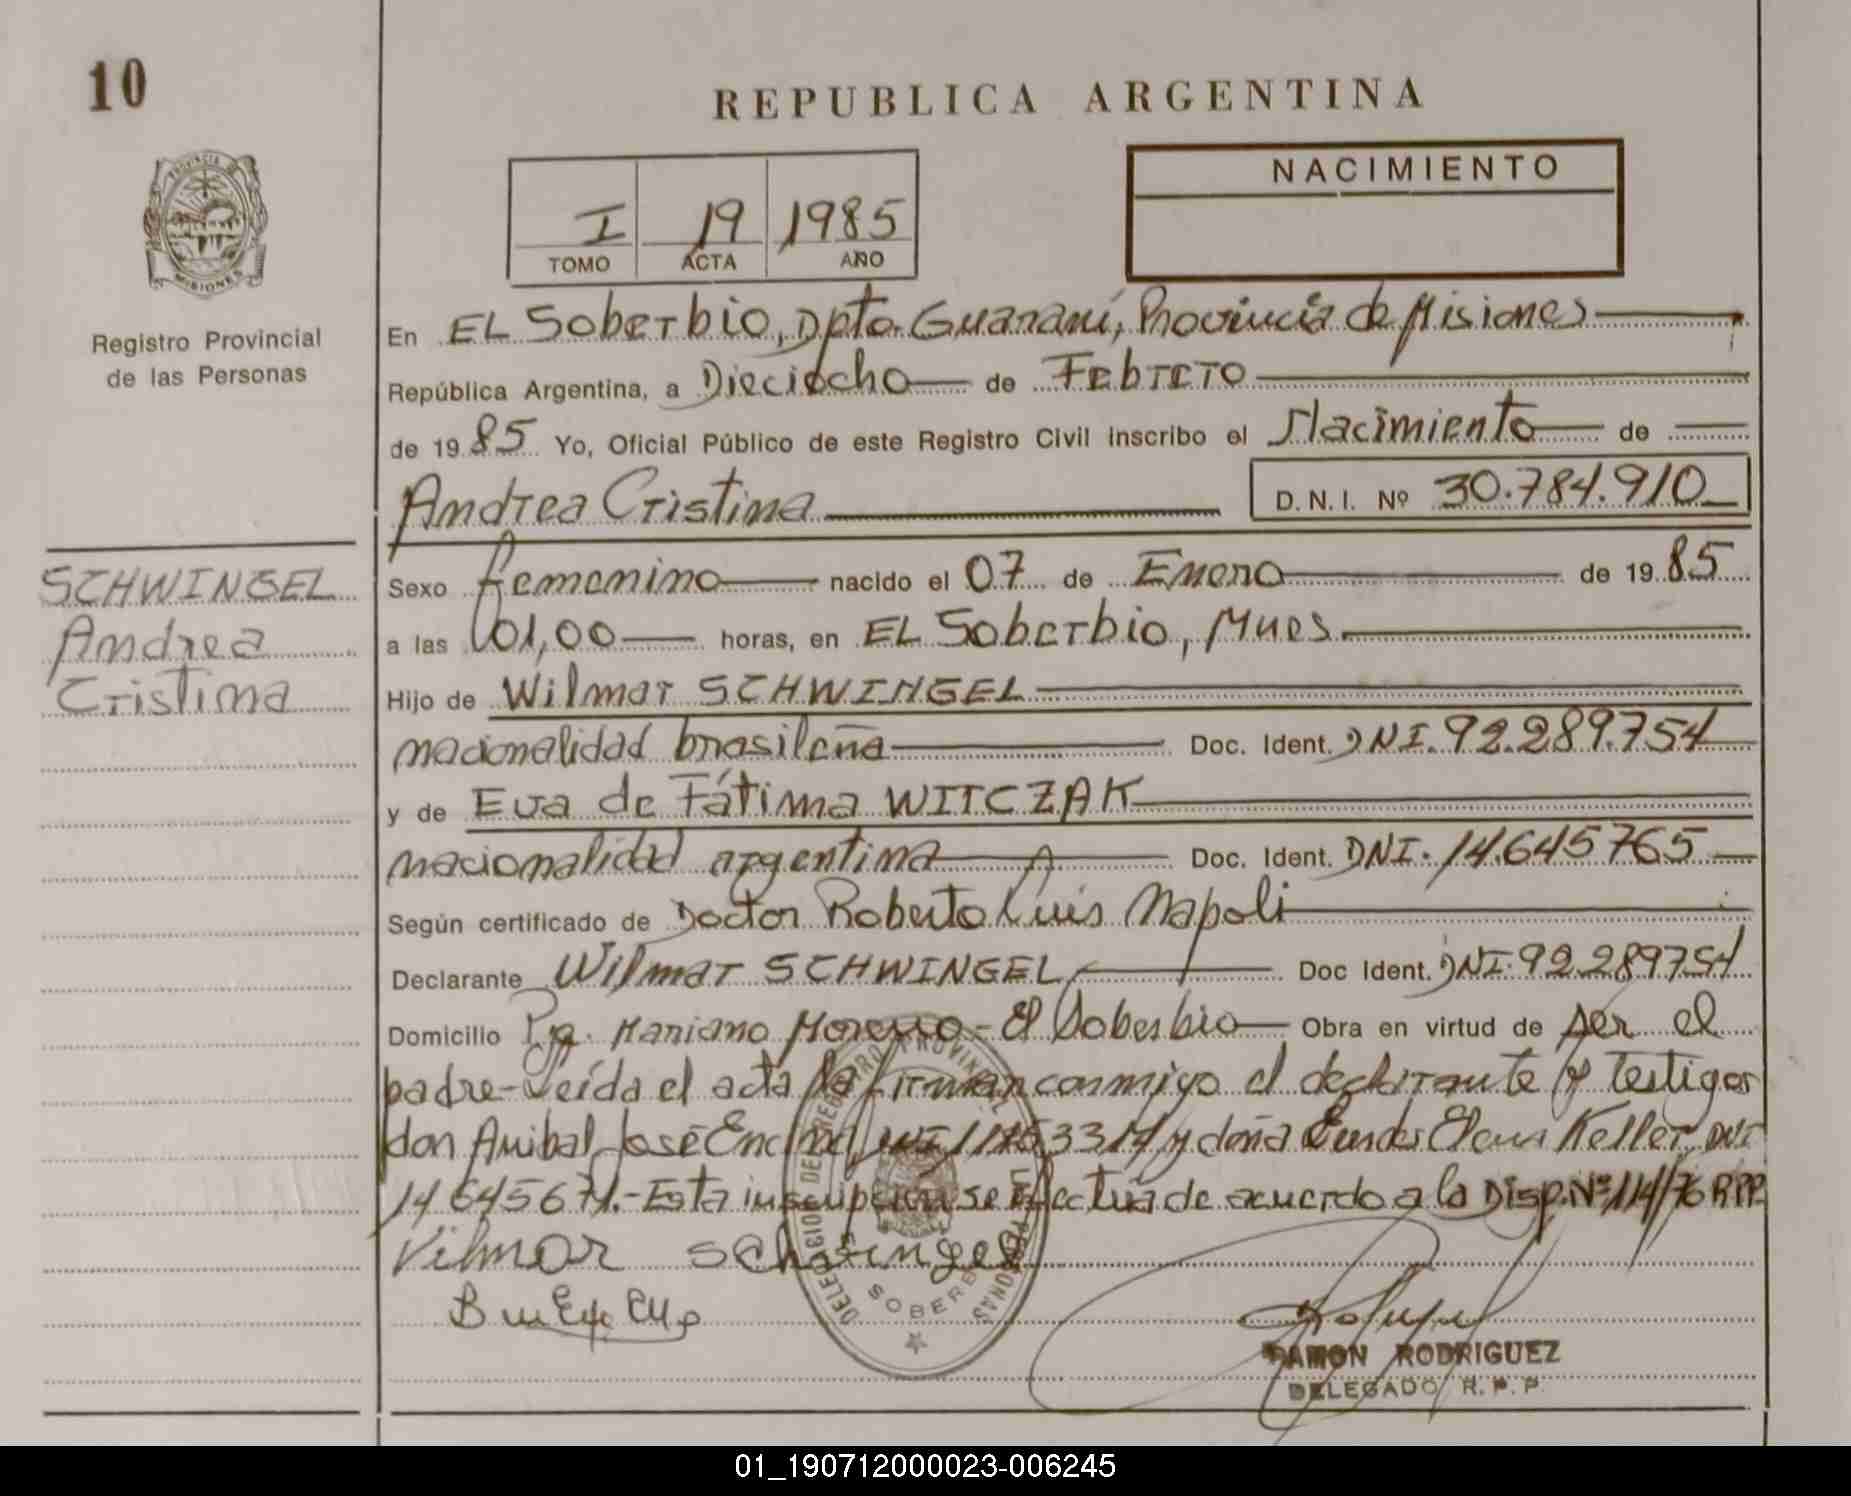 10
REPUBLICA ARGENTINA
PROVINCIA DE
MISIONES
NACIMIENTO
I 19 1985
TOMO ACTA AÑO
Registro Provincial
de las Personas
En EL Soberbio, Dpto. Guaraní, Provincia de Misiones
República Argentina, a Dieciocho de Febrero
de 1985 Yo, Oficial Público de este Registro Civil inscribo el Nacimiento de
Andrea Cristina D.N.I. Nº 30.784.910
SCHWINGEL
Andrea
Cristina
Sexo femenino nacido el 07 de Enero de 1985
a las 01,00 horas, en EL Soberbio, Mnes.
Hijo de Wilmar SCHWINGEL
nacionalidad brasileña Doc. Ident. DNI. 92.289.754
y de Eva de Fátima WITCZAK
nacionalidad argentina Doc. Ident. DNI. 14.645765
Según certificado de Doctor Roberto Luis Napoli
Declarante Wilmar SCHWINGEL Doc Ident. DNI. 92.289754
Domicilio Pje. Mariano Moreno - El Soberbio Obra en virtud de ser el
padre - Leída el acta la firman conmigo el declarante y testigos
don Anibal José y doña Elena Keller DNI
14645674.- Esta inscripción se efectúa de acuerdo a la Disp. Nº 114/76 RPP.
Vilmar Schwingel
DELEGACION DEL REGISTRO PROVINCIAL DE LAS PERSONAS
SOBERBIO
RAMON RODRIGUEZ
DELEGADO R.P.P.
01_190712000023-006245